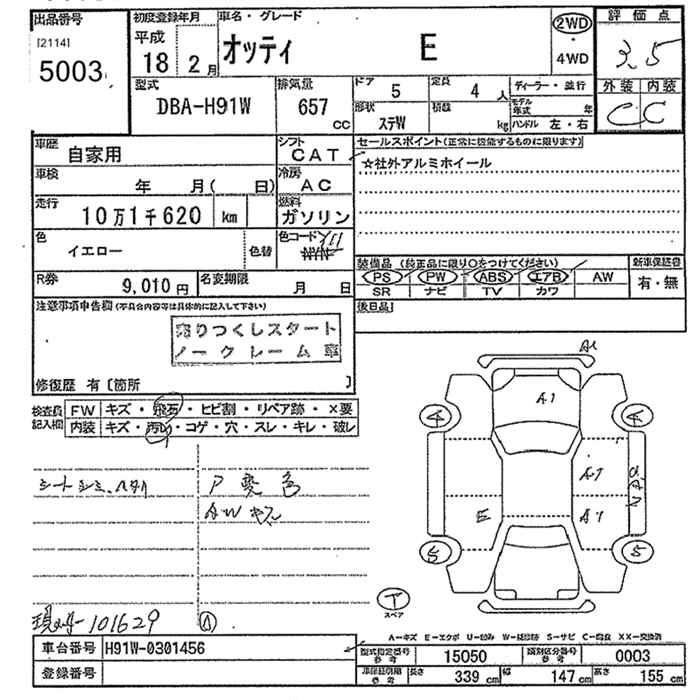 出品番号
[2114]
5003
初度登録年月
平成
18 2月
車名・グレード
オッティ E
2WD
・
4WD
評価点
3.5
外装 内装
C C
型式
DBA-H91W
排気量
657
CC
ドア 5
定員 4 人
ディーラー・並行
形状 ステW
積載 kg
モデル年式 年
ハンドル 左・右
車歴
自家用
シフト
CAT
車検
年 月( 日)
冷房
AC
走行
10万1千620 km
燃料
ガソリン
色
イエロー
色替
色コード
Y11
R券
9,010円
名変期限
月 日
セールスポイント(正常に機能するものに限ります)
☆社外アルミホイール
装備品(純正品に限り○をつけてください)
PS PW ABS エアB AW
SR ナビ TV カワ
新車保証書
有・無
後日品
注意事項申告欄(不具合内容等は具体的に記入して下さい)
売りつくしスタート
ノークレーム車
修復歴 有[箇所 ]
検査員記入欄
FW キズ・飛石・ヒビ割・リペア跡・×要
内装 キズ・汚れ・コゲ・穴・スレ・キレ・破レ
シートシミ、スタリ
P変色
AWキズ
101629
A
A1
A1
4 4
A1
E A1
5 5
T
スペア
A-キズ E-エクボ U-凹み W-補修跡 S-サビ C-腐食 XX-交換済
車台番号 H91W-0301456
登録番号
型式指定番号
参考
15050
類別区分番号
参考
0003
車検証明細
参考
長さ 339 cm 幅 147 cm 高さ 155 cm